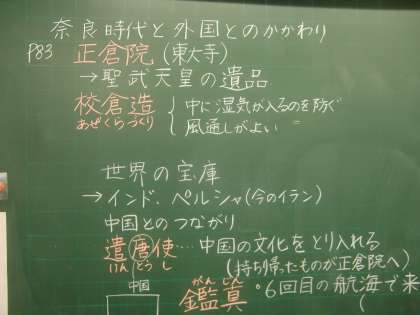 奈良時代と外国とのかかわり
P83 正倉院(東大寺)
→聖武天皇の遺品
校倉造 中に湿気が入るのを防ぐ
あぜくらづくり 風通しがよい 〃
世界の宝庫
→インド、ペルシャ(今のイラン)
中国とのつながり
遣唐使…中国の文化をとり入れる
けんとうし (持ち帰ったものが正倉院へ)
中国
がんじん
鑑真 ・6回目の航海で来
(